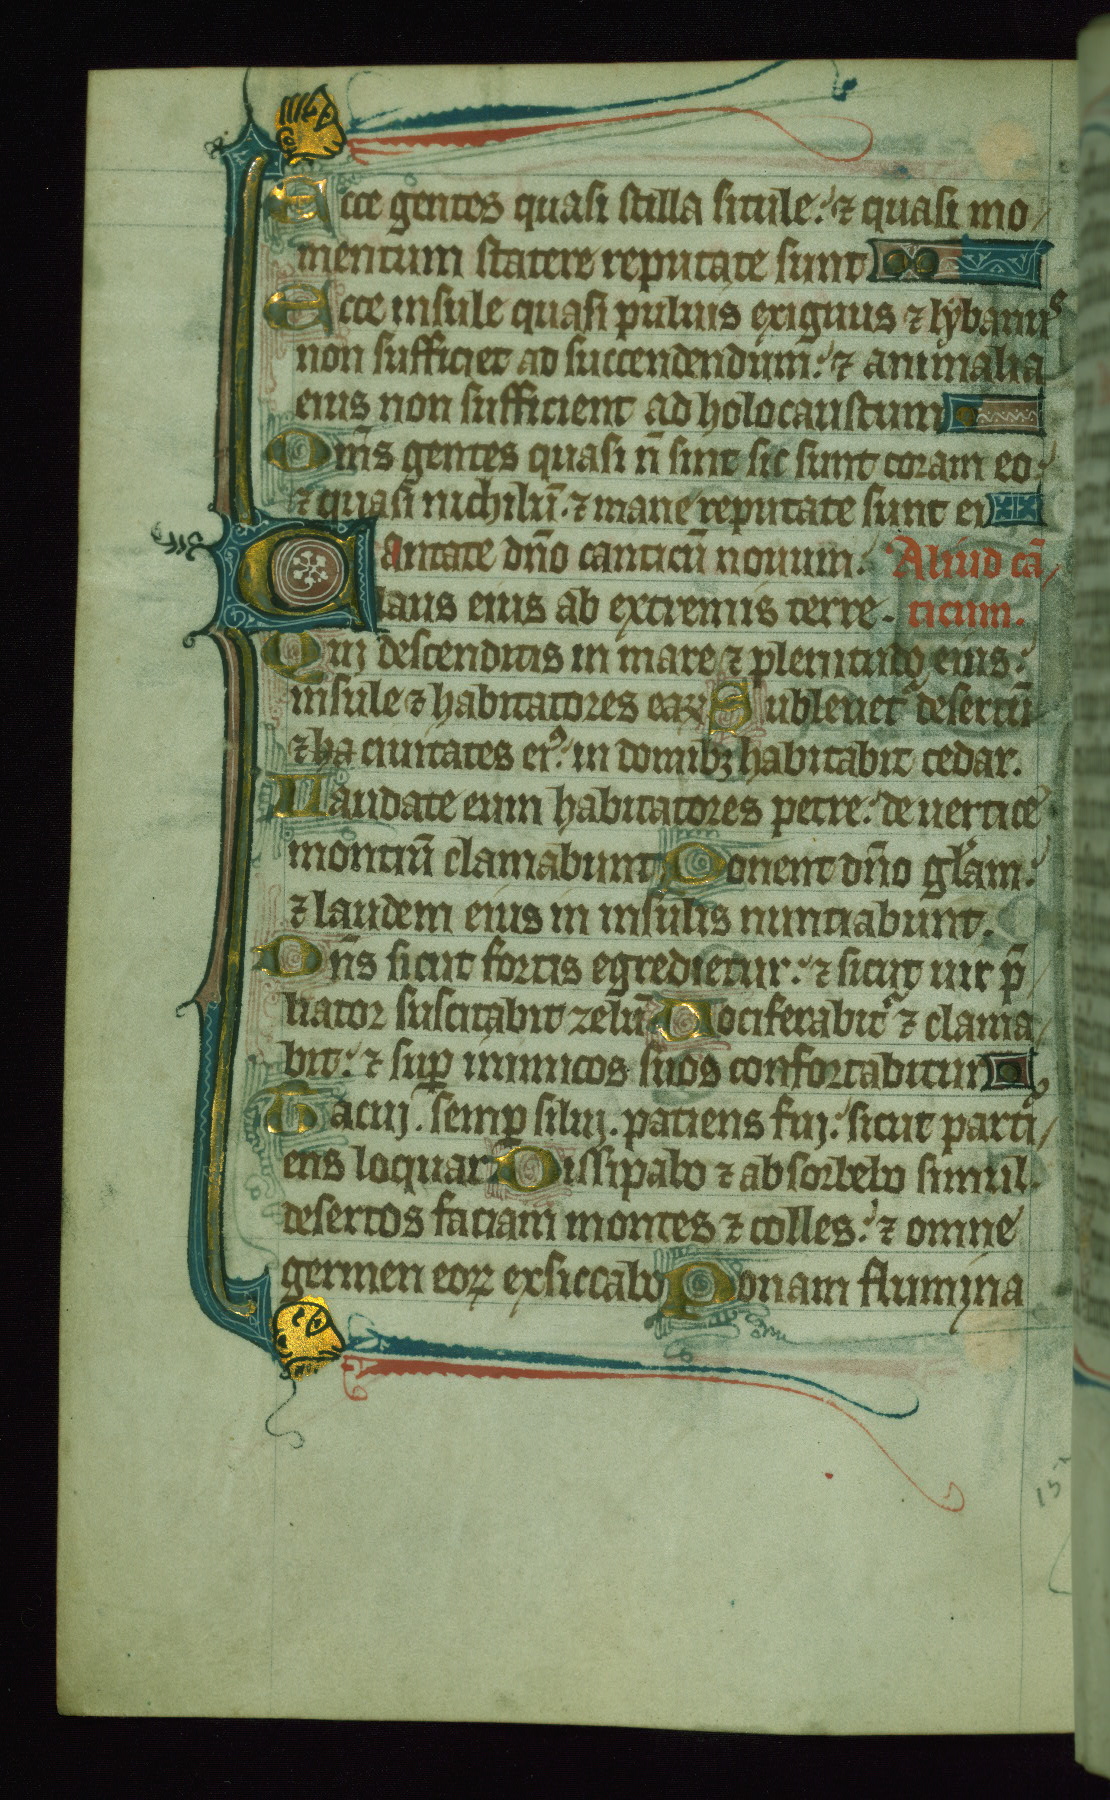 Ecce gentes quasi stilla situle: ⁊ quasi mo
mentum statere reputate sunt
Ecce insule quasi puluis exiguus ⁊ lybanus
non sufficiet ad succendendum: ⁊ animalia
eius non sufficient ad holocaustum
Om̄s gentes quasi n̄ sint sic sunt coram eo:
⁊ quasi nichilū ⁊ inane reputate sunt ei
Cantate dn̄o canticū nouum. Aliud cā
laus eius ab extremis terre. ticum.
Qui descenditis in mare ⁊ plenitudo eius:
insule ⁊ habitatores eaꝝ Subleuet᷑ desertū
⁊ ha ciuitates eiꝰ: in domibꝫ habitabit cedar.
Laudate eum habitatores petre: de uertice
montiū clamabunt Ponent dn̄o gl̄am:
⁊ laudem eius in insulis nuntiabunt.
Dn̄s sicut fortis egredietur: ⁊ sicut uir p̄
liator suscitabit zelū Uociferabit᷑ ⁊ clama
bit: ⁊ sup̄ inimicos suos confortabitur
Tacui semp̄ silui. patiens fui: sicut parti
ens loquar Dissipabo ⁊ absorbebo simul
desertos faciam montes ⁊ colles: ⁊ omne
germen eoꝝ exsiccabo Ponam flumina
15